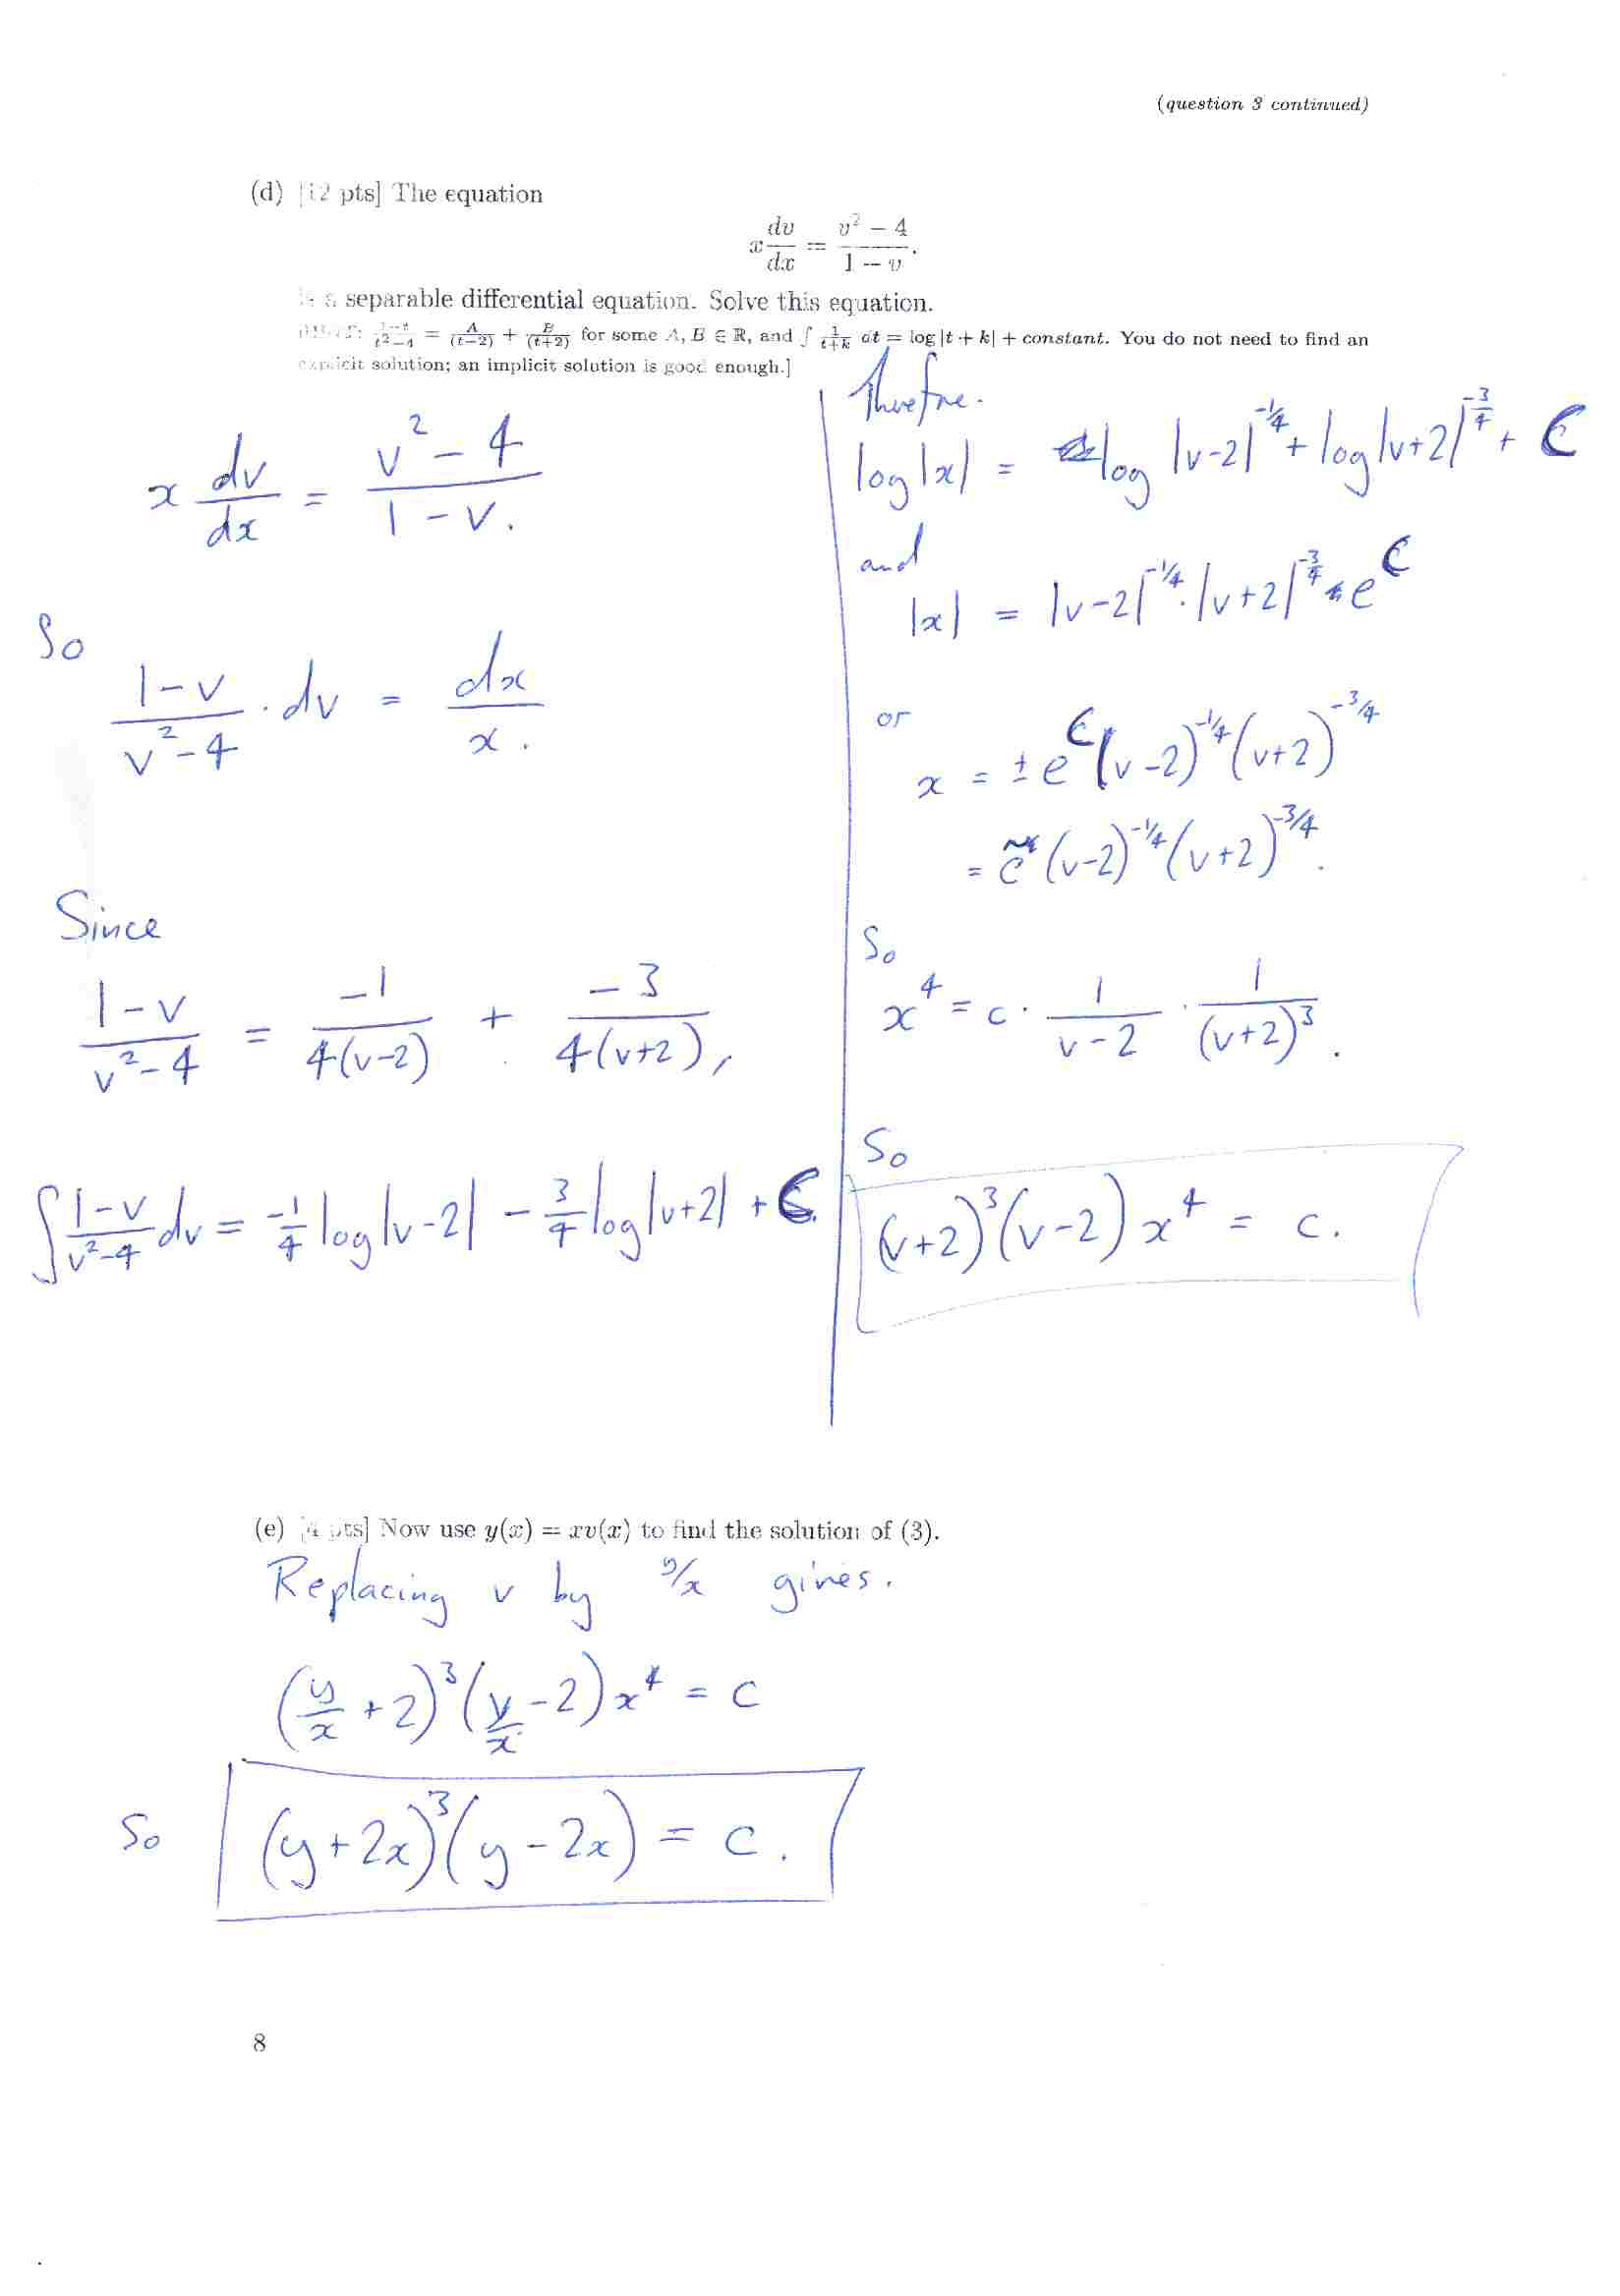 (question 3 continued)
(d) [12 pts] The equation
x dv/dx = (v² − 4)/(1 − v).
is a separable differential equation. Solve this equation.
(1−t)/(t²−4) = A/(t−2) + B/(t+2) for some A, B ∈ ℝ, and ∫ 1/(t+k) dt = log |t + k| + constant. You do not need to find an
explicit solution; an implicit solution is good enough.]
x dv/dx = (v² − 4)/(1 − v).
So
(1−v)/(v²−4) · dv = dx/x.
Since
(1−v)/(v²−4) = −1/(4(v−2)) + −3/(4(v+2)),
∫ (1−v)/(v²−4) dv = −1/4 log|v−2| − 3/4 log|v+2| + C.
Therefore.
log|x| = log |v−2|^(−1/4) + log|v+2|^(−3/4) + C
and
|x| = |v−2|^(−1/4) · |v+2|^(−3/4) e^C
or
x = ± e^C (v−2)^(−1/4) (v+2)^(−3/4)
= c̃ (v−2)^(−1/4) (v+2)^(−3/4).
So
x⁴ = c · 1/(v−2) · 1/(v+2)³.
So
(v+2)³(v−2) x⁴ = c.
(e) [4 pts] Now use y(x) = xv(x) to find the solution of (3).
Replacing v by y/x gives.
(y/x + 2)³(y/x − 2) x⁴ = c
So (y+2x)³(y−2x) = c.
8